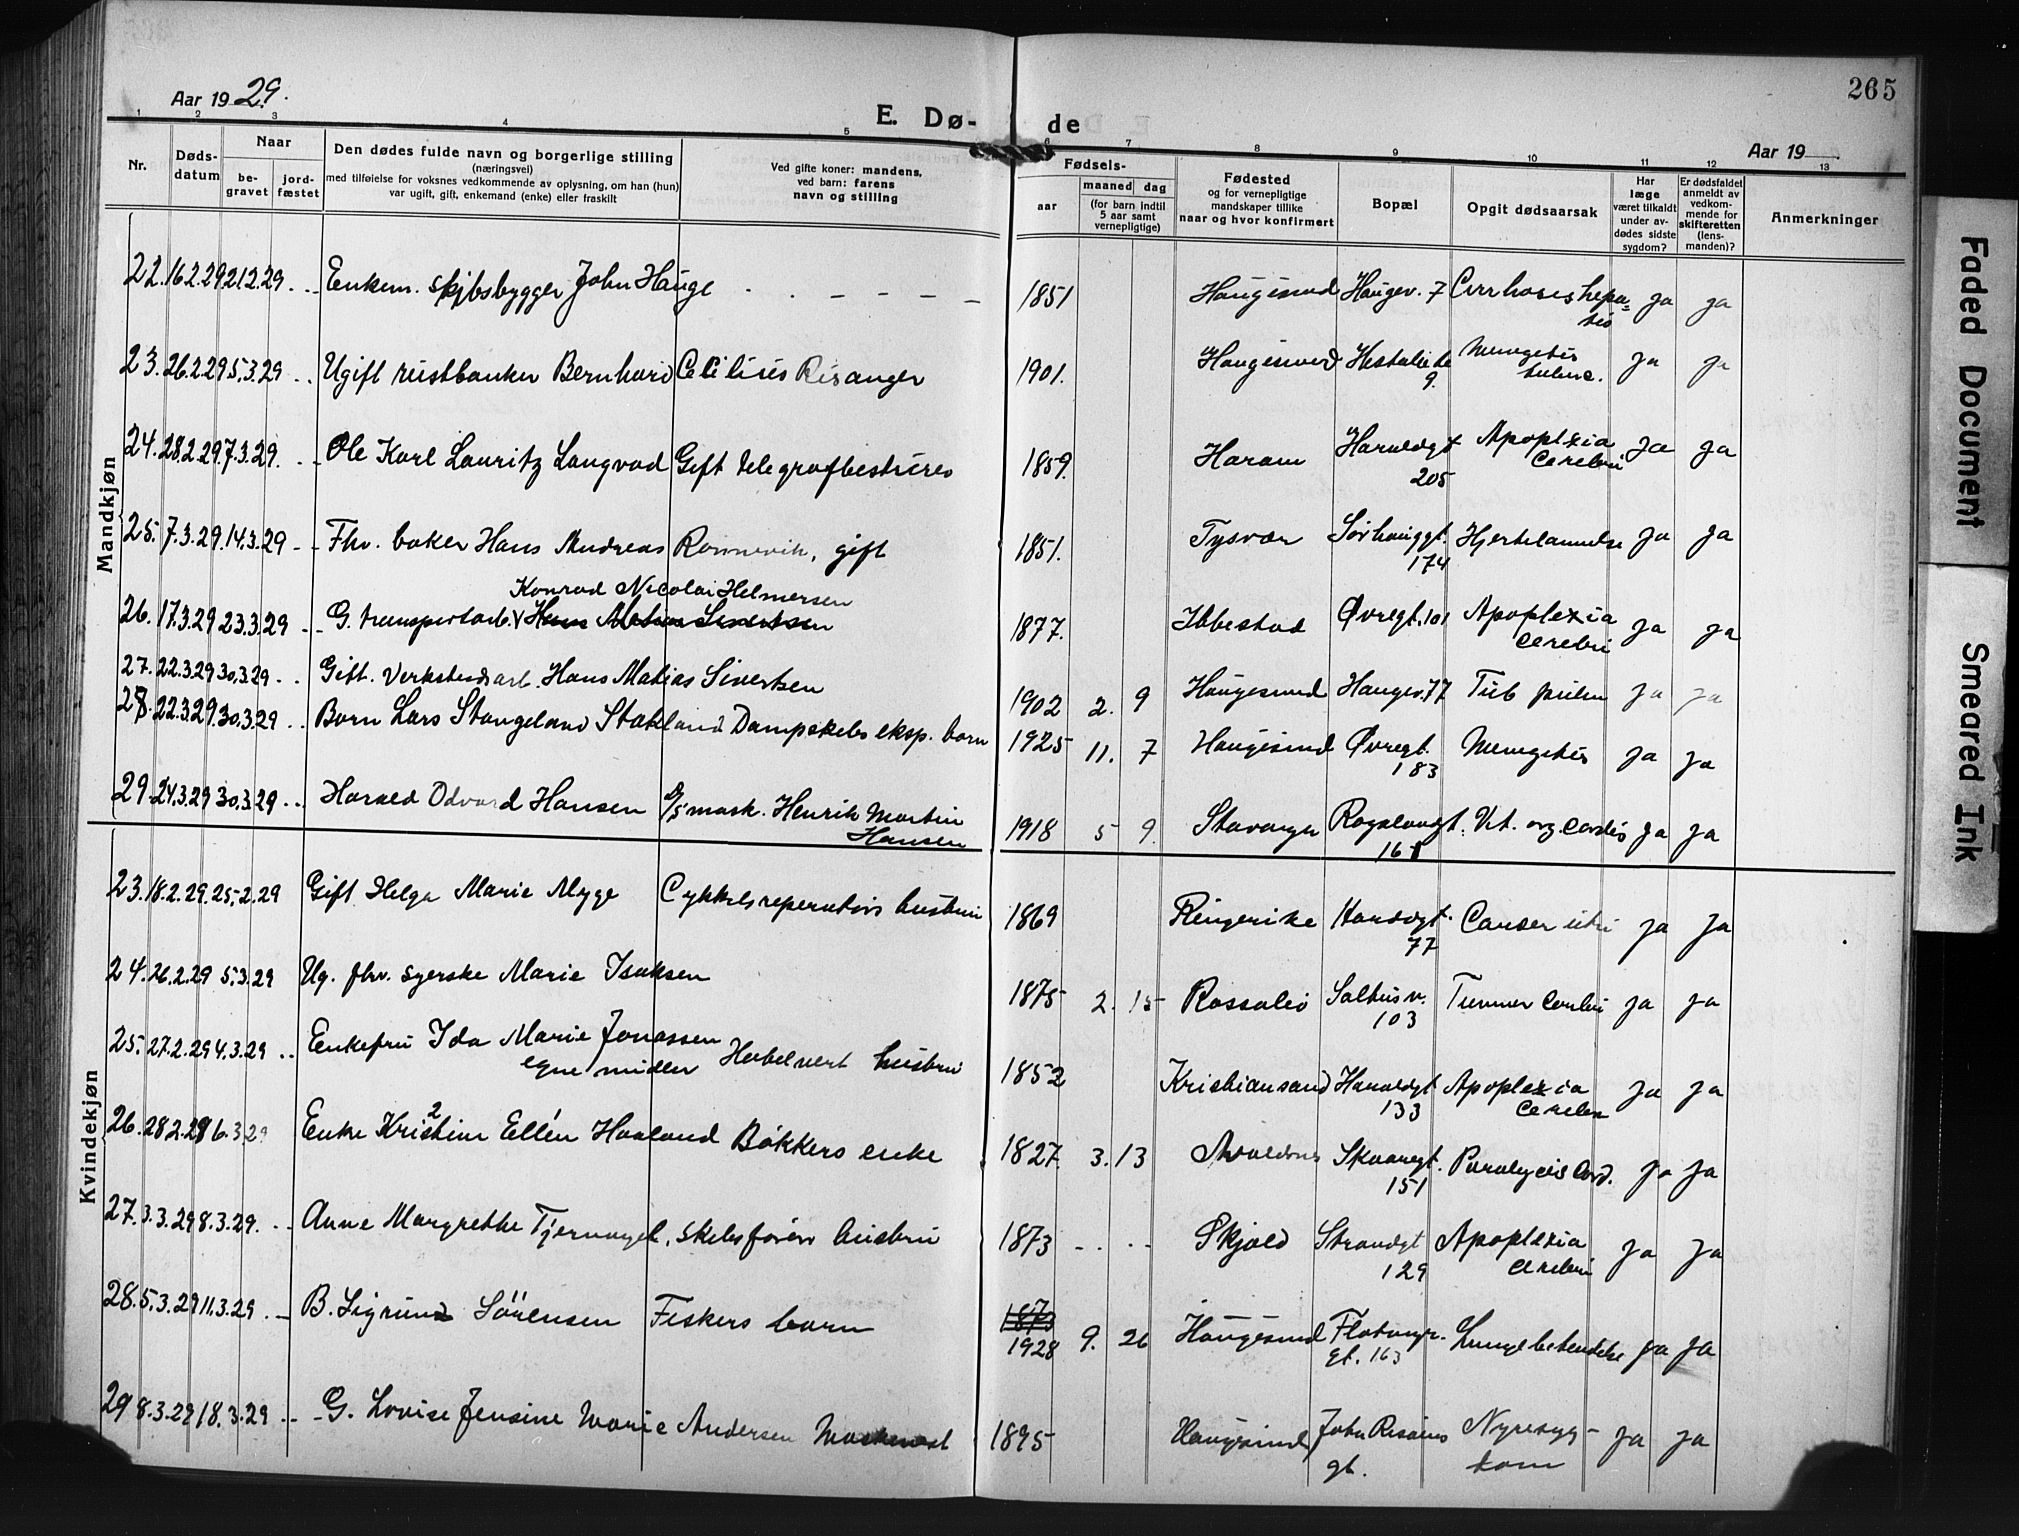 265
Aar 1929.
E. Dø- de
Aar 19
1 2 3 4 5 6 7 8 9 10 11 12 13
Nr.
Døds-
datum
Naar
be-
gravet
jord-
fæstet
Den dødes fulde navn og borgerlige stilling
(næringsvei)
med tilføielse for voksnes vedkommende av oplysning, om han (hun)
var ugift, gift, enkemand (enke) eller fraskilt
Ved gifte koner: mandens,
ved barn: farens
navn og stilling
Fødsels-
aar
maaned dag
(for barn indtil
5 aar samt
vernepligtige)
Fødested
og for vernepligtige
mandskaper tillike
naar og hvor konfirmert
Bopæl
Opgit dødsaarsak
Har
læge
været tilkaldt
under av-
dødes sidste
sygdom?
Er dødsfaldet
anmeldt av
vedkom-
mende for
skifteretten
(lens-
manden)?
Anmerkninger
Mandkjøn
22. 16.2.29 21.2.29 Enkem. skjbsbygger John Hauge 1851 Haugesund Haugev. 7 Cirrhosis hepa=
tis ja ja
23. 26.2.29 5.3.29 Ugift rustbanker Bernhard Celilius Risanger 1901. Haugesund 9. Mengetis
ja ja
24. 28.2.29 7.3.29. Ole Karl Lauritz Langvad Gift telegrafbestyrer 1859. Haram Haraldgt
205 Apoplexia
Cerebri ja ja
25. 7.3.29. 14.3.29 Fhv. baker Hans Andreas Rønnevik, gift 1851. Tysvær Sørhauggt.
174 Hjertelammelse ja ja
Konrad Nicolai Helmersen
26. 17.3.29 23.3.29 G. transportarb. Hans Matias Sivertsen 1877. Ibbestad Øvregt. 101 Apoplexia
Cerebri ja ja
27. 22.3.29 30.3.29 Gift. Verkstedsarb. Hans Matias Sivertsen 1902 2. 9 Haugesund Haugev. 77 Tub pulm ja ja
28. 22.3.29. 30.3.29 Barn Lars Stangeland Stakland Dampskibs eksp. barn 1925 11. 7 Haugesund Øvregt.
183 Mengetis ja ja
29. 24.3.29 30.3.29 Harald Odvard Hansen S/S mask. Henrik Martin
Hansen 1918 5 9. Stavanger Rogalandgt.
161 Vit. org cordis ja ja
Kvindekjøn
23. 18.2.29. 25.2.29 Gift Helga Marie Myge Cykkelreperatørs hustru 1869 Ringerike Haraldgt.
77 Canser uteri ja ja
24. 26.2.29 5.3.29 Ug. fhv. syerske Marie Isaksen 1875 2. 15 Salhusv.
103 Tummor Cerebri ja ja
25. 27.2.29 4.3.29 Enkefru Ida Marie Jonassen
egne midler hustru 1852 Kristiansand Haraldgt
133 Apoplexia
Cerebri ja ja
26. 28.2.29 6.3.29 Enke Kristine Ellén Haaland Bøkkers enke 1827. 3. 13 Avaldsnes Skaaregt.
151 Paralycis Cord. ja ja
27. 3.3.29 8.3.29. Anne Margrethe Tjernagel, skibsførers hustru 1873 Skjold Strandgt
129 Apoplexia
Cerebri ja ja
28. 5.3.29 11.3.29 B. Sigrund Sörensen Fiskers barn 1873
1928 9. 26 Haugesund
gt. 163 Lungebetendelse ja ja
29 8.3.29 18.3.29 G. Lovise Jensine Marie Andersen 1895 Haugesund John Risøens
gt. Nyresyg-
dom ja ja
Faded Document
Smeared Ink